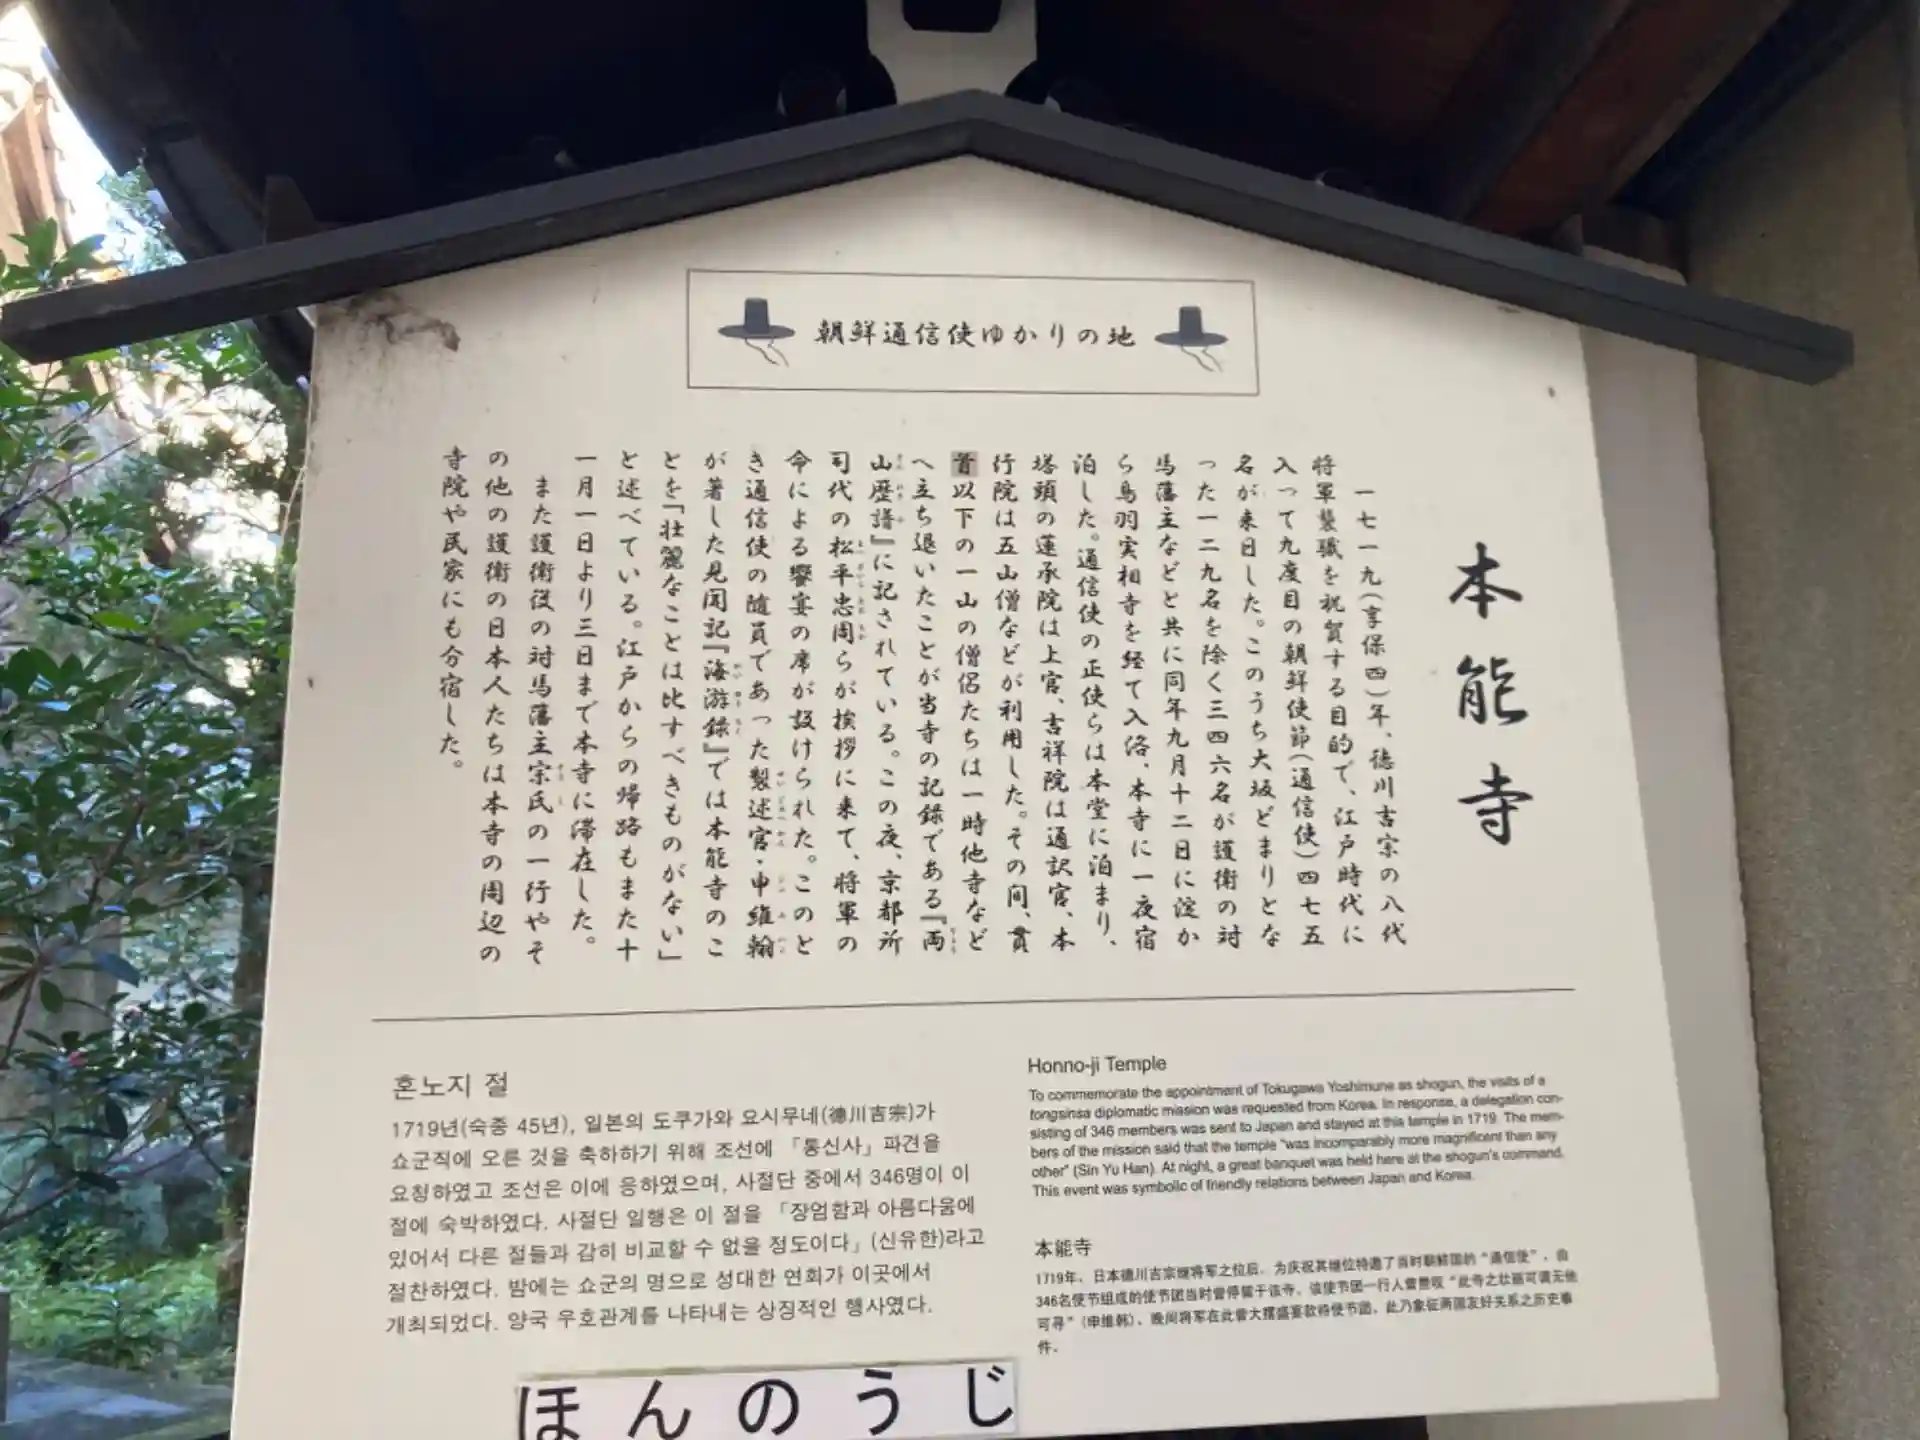 朝鮮通信使ゆかりの地
本能寺
一七一九(享保四)年、徳川吉宗の八代
将軍襲職を祝賀する目的で、江戸時代に
入って九度目の朝鮮使節(通信使)四七五
名が来日した。このうち大坂どまりとな
った一二九名を除く三四六名が護衛の対
馬藩主などと共に同年九月十二日に淀か
ら鳥羽実相寺を経て入洛、本寺に一夜宿
泊した。通信使の正使らは本堂に泊まり、
塔頭の蓮承院は上官、吉祥院は通訳官、本
行院は五山僧などが利用した。その間、貫
首以下の一山の僧侶たちは一時他寺など
へ立ち退いたことが当寺の記録である『両
山歴譜』に記されている。この夜、京都所
司代の松平忠周らが挨拶に来て、将軍の
命による饗宴の席が設けられた。このと
き通信使の随員であった製述官・申維翰
が著した見聞記『海游録』では本能寺のこ
とを「壮麗なことは比すべきものがない」
と述べている。江戸からの帰路もまた十
一月一日より三日まで本寺に滞在した。
また護衛役の対馬藩主宗氏の一行やそ
の他の護衛の日本人たちは本寺の周辺の
寺院や民家にも分宿した。
혼노지 절
1719년(숙종 45년), 일본의 도쿠가와 요시무네(德川吉宗)가
쇼군직에 오른 것을 축하하기 위해 조선에 「통신사」 파견을
요청하였고 조선은 이에 응하였으며, 사절단 중에서 346명이 이
절에 숙박하였다. 사절단 일행은 이 절을 「장엄함과 아름다움에
있어서 다른 절들과 감히 비교할 수 없을 정도이다」(신유한)라고
절찬하였다. 밤에는 쇼군의 명으로 성대한 연회가 이곳에서
개최되었다. 양국 우호관계를 나타내는 상징적인 행사였다.
Honno-ji Temple
To commemorate the appointment of Tokugawa Yoshimune as shogun, the visits of a
tongsinsa diplomatic mission was requested from Korea. In response, a delegation con-
sisting of 346 members was sent to Japan and stayed at this temple in 1719. The mem-
bers of the mission said that the temple "was incomparably more magnificent than any
other" (Sin Yu Han). At night, a great banquet was held here at the shogun's command.
This event was symbolic of friendly relations between Japan and Korea.
本能寺
1719年，日本德川吉宗继将军之位后，为庆祝其继位特邀了当时朝鲜国的“通信使”，由
346名使节组成的使节团当时曾停留于该寺，该使节团一行人曾赞叹“此寺之壮丽可谓无他
可寻”（申维韩），晚间将军在此曾大摆盛宴款待使节团，此乃象征两国友好关系之历史事
件。
ほんのうじ